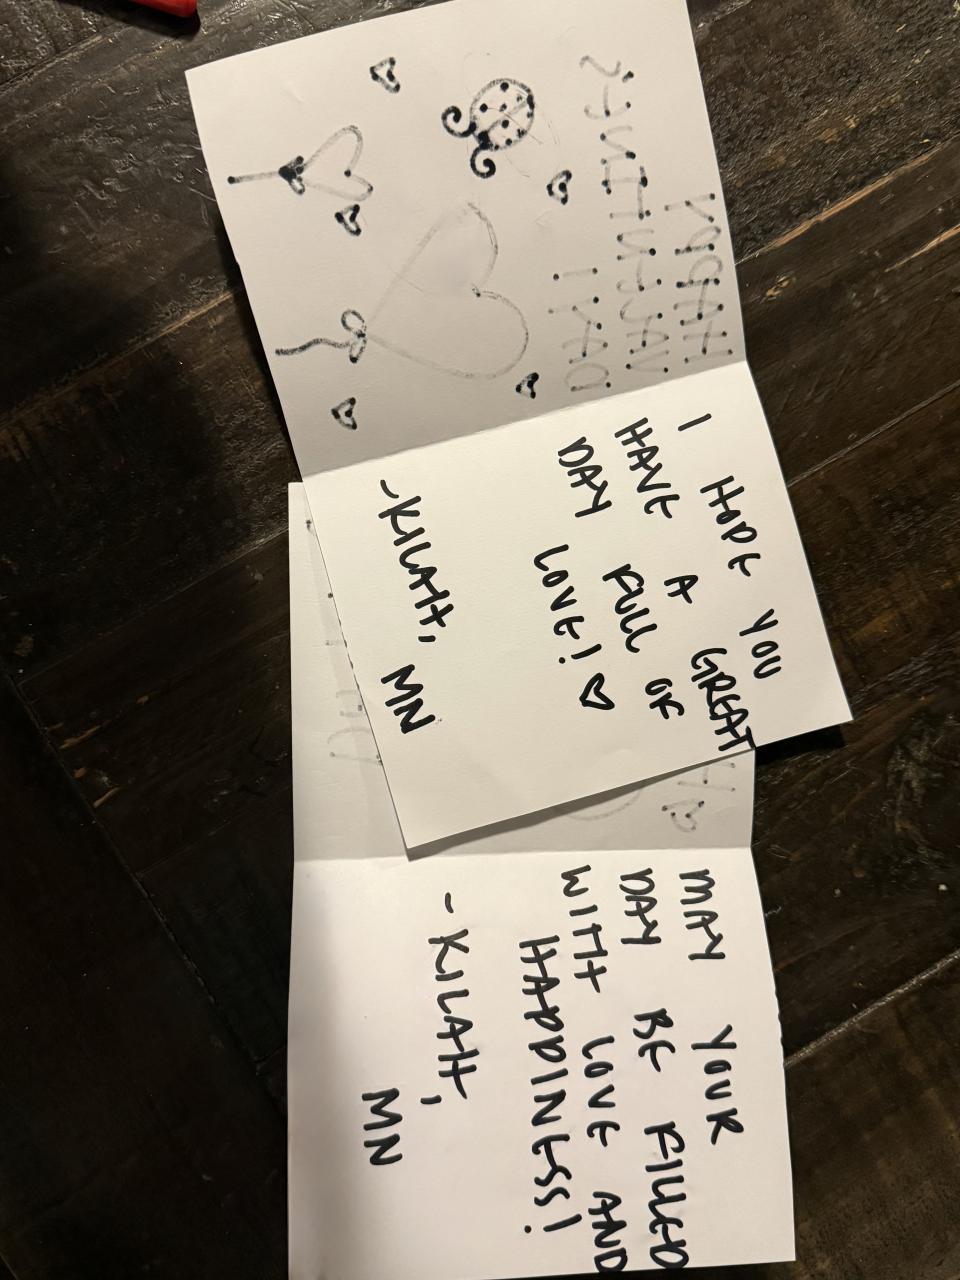 I HOPE YOU
HAVE A GREAT
DAY FULL OF
LOVE! ♡
-KILAH, MN
MAY YOUR
DAY BE FILLED
WITH LOVE AND
HAPPINESS!
-KILAH,
MN
HAPPY
VALENTINE'S
DAY!